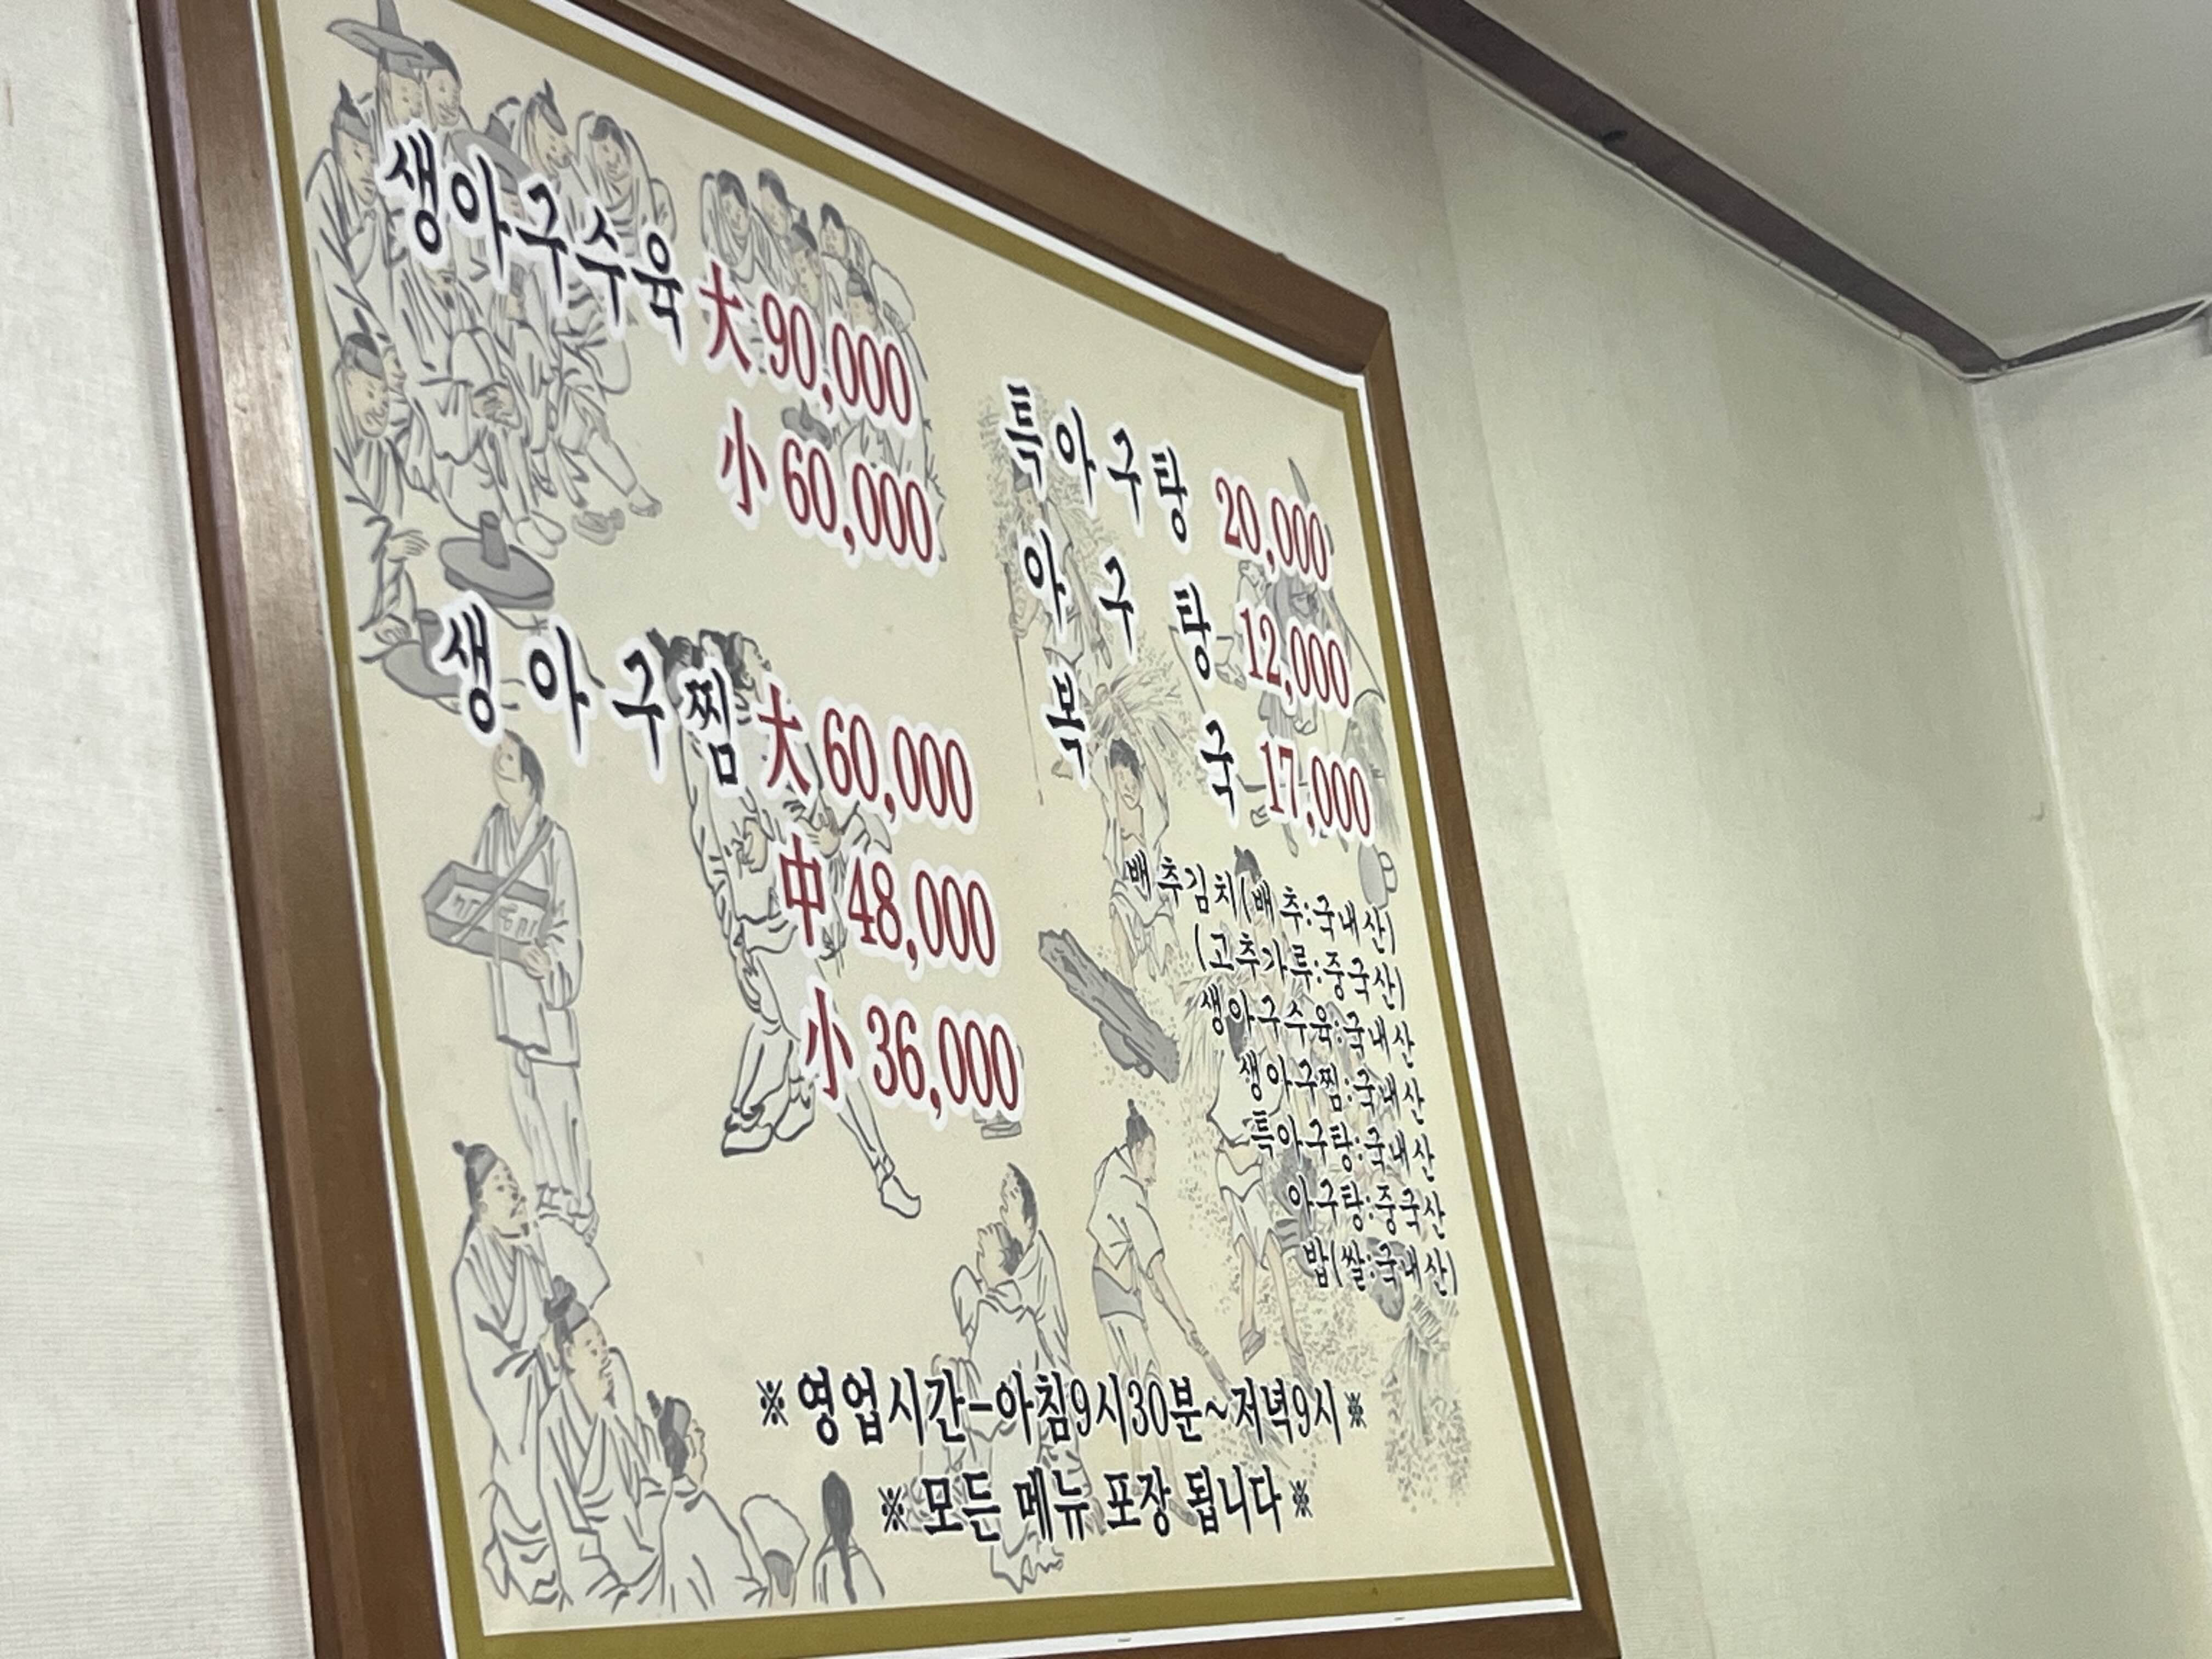 생아구수육 大 90,000
小 60,000
생아구찜 大 60,000
中 48,000
小 36,000
특아구탕 20,000
아구탕 12,000
복국 17,000
배추김치(배추:국내산)
(고추가루:중국산)
생아구수육:국내산
생아구찜:국내산
특아구탕:국내산
아구탕:중국산
밥(쌀:국내산)
※영업시간-아침9시30분~저녁9시※
※모든 메뉴 포장 됩니다※